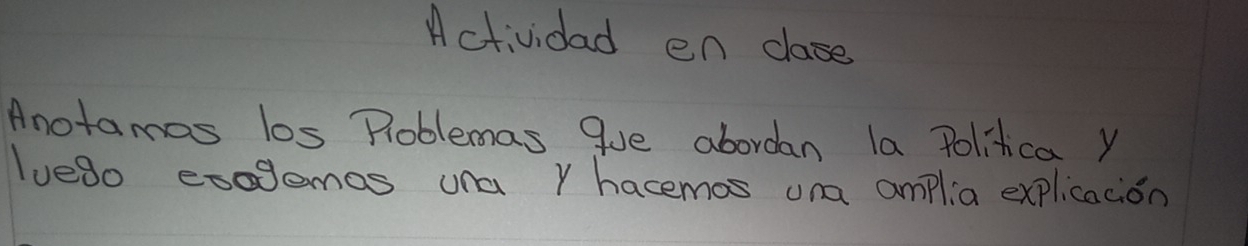 Actividad en clase
Anotamos los Problemas que abordan la Política y
luego escogemos una y hacemos una amplia explicación